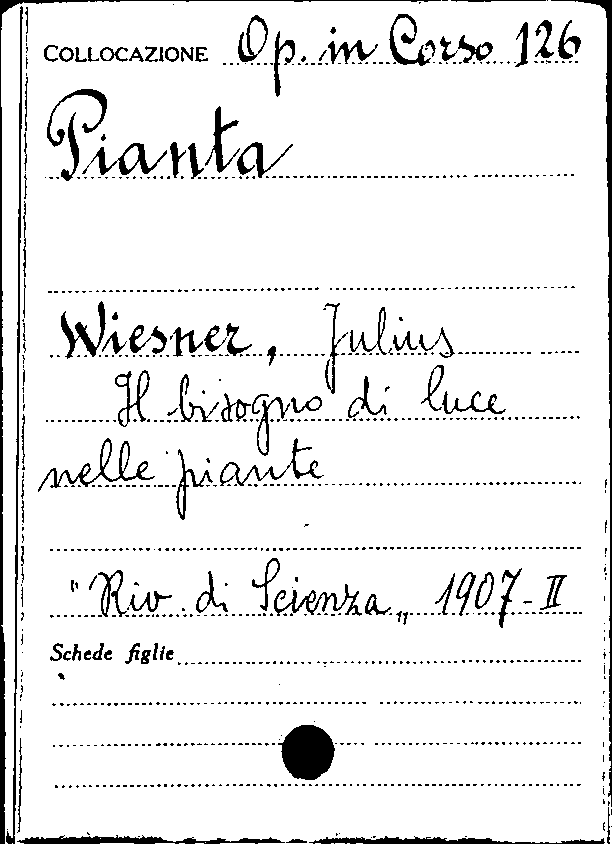 COLLOCAZIONE Op. in Corso 126
Pianta
Wiesner, Julius
Il bisogno di luce
nelle piante
"Riv. di Scienza„ 1907-II
Schede figlie